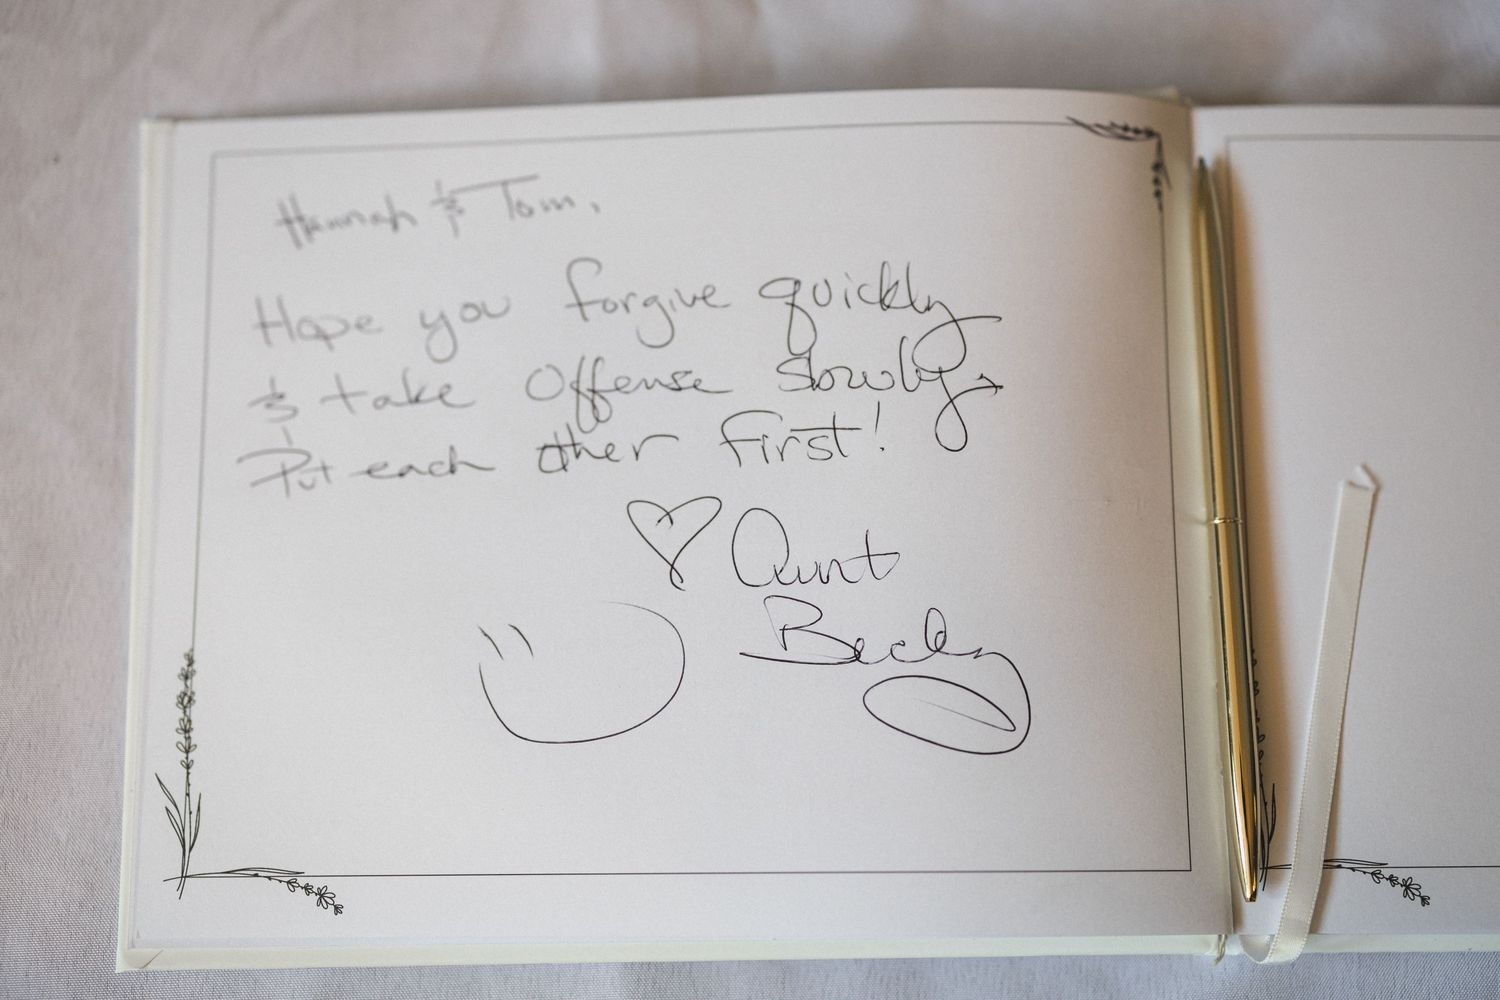 Hannah & Tom,
Hope you forgive quickly
& take offense slowly,
Put each other first!
♡ Aunt
Becky